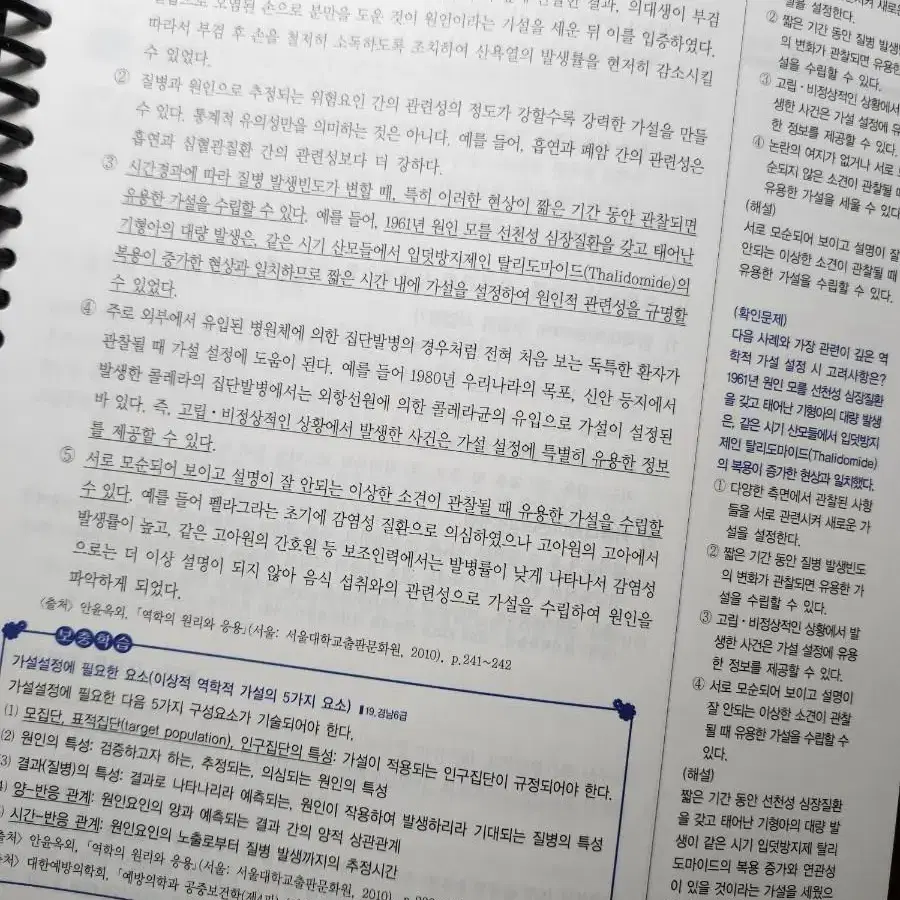 으로 오염된 손으로 분만을 도운 것이 원인이라는 가설을 세운 뒤 이를 입증하였다.
따라서 부검 후 손을 철저히 소독하도록 조치하여 산욕열의 발생률을 현저히 감소시킬
수 있었다.
② 질병과 원인으로 추정되는 위험요인 간의 관련성의 정도가 강할수록 강력한 가설을 만들
수 있다. 통계적 유의성만을 의미하는 것은 아니다. 예를 들어, 흡연과 폐암 간의 관련성은
흡연과 심혈관질환 간의 관련성보다 더 강하다.
③ 시간경과에 따라 질병 발생빈도가 변할 때, 특히 이러한 현상이 짧은 기간 동안 관찰되면
유용한 가설을 수립할 수 있다. 예를 들어, 1961년 원인 모를 선천성 심장질환을 갖고 태어난
기형아의 대량 발생은, 같은 시기 산모들에서 입덧방지제인 탈리도마이드(Thalidomide)의
복용이 증가한 현상과 일치하므로 짧은 시간 내에 가설을 설정하여 원인적 관련성을 규명할
수 있었다.
④ 주로 외부에서 유입된 병원체에 의한 집단발병의 경우처럼 전혀 처음 보는 독특한 환자가
관찰될 때 가설 설정에 도움이 된다. 예를 들어 1980년 우리나라의 목포, 신안 등지에서
발생한 콜레라의 집단발병에서는 외항선원에 의한 콜레라균의 유입으로 가설이 설정된
바 있다. 즉, 고립·비정상적인 상황에서 발생한 사건은 가설 설정에 특별히 유용한 정보
를 제공할 수 있다.
⑤ 서로 모순되어 보이고 설명이 잘 안되는 이상한 소견이 관찰될 때 유용한 가설을 수립할
수 있다. 예를 들어 펠라그라는 초기에 감염성 질환으로 의심하였으나 고아원의 고아에서
발생률이 높고, 같은 고아원의 간호원 등 보조인력에서는 발병률이 낮게 나타나서 감염성
으로는 더 이상 설명이 되지 않아 음식 섭취와의 관련성으로 가설을 수립하여 원인을
파악하게 되었다.
〈출처〉 안윤옥외, 「역학의 원리와 응용」(서울: 서울대학교출판문화원, 2010), p.241~242
보충학습
가설설정에 필요한 요소(이상적 역학적 가설의 5가지 요소) ▮19.경남6급
가설설정에 필요한 다음 5가지 구성요소가 기술되어야 한다.
(1) 모집단, 표적집단(target population), 인구집단의 특성: 가설이 적용되는 인구집단이 규정되어야 한다.
(2) 원인의 특성: 검증하고자 하는, 추정되는, 의심되는 원인의 특성
(3) 결과(질병)의 특성: 결과로 나타나리라 예측되는, 원인이 작용하여 발생하리라 기대되는 질병의 특성
) 양-반응 관계: 원인요인의 양과 예측되는 결과 간의 양적 상관관계
) 시간-반응 관계: 원인요인의 노출로부터 질병 발생까지의 추정시간
출처〉 안윤옥외, 「역학의 원리와 응용」(서울: 서울대학교출판문화원, 2010),
출처〉 대한예방의학회, 「예방의학과 공중보건학(제4판)
설을 설정한다.
② 짧은 기간 동안 질병 발생
의 변화가 관찰되면 유용한
설을 수립할 수 있다.
③ 고립·비정상적인 상황에서
생한 사건은 가설 설정에 유
한 정보를 제공할 수 있다.
④ 논란의 여지가 없거나 서로
순되지 않은 소견이 관찰될 때
유용한 가설을 세울 수 있다
(해설)
서로 모순되어 보이고 설명이 잘
안되는 이상한 소견이 관찰될 때
유용한 가설을 수립할 수 있다.
(확인문제)
다음 사례와 가장 관련이 깊은 역
학적 가설 설정 시 고려사항은?
1961년 원인 모를 선천성 심장질환
을 갖고 태어난 기형아의 대량 발생
은, 같은 시기 산모들에서 입덧방지
제인 탈리도마이드(Thalidomide)
의 복용이 증가한 현상과 일치했다.
① 다양한 측면에서 관찰된 사항
들을 서로 관련시켜 새로운 가
설을 설정한다.
② 짧은 기간 동안 질병 발생빈도
의 변화가 관찰되면 유용한 가
설을 수립할 수 있다.
③ 고립·비정상적인 상황에서 발
생한 사건은 가설 설정에 유용
한 정보를 제공할 수 있다.
④ 서로 모순되어 보이고 설명이
잘 안되는 이상한 소견이 관찰
될 때 유용한 가설을 수립할 수
있다.
(해설)
짧은 기간 동안 선천성 심장질환
을 갖고 태어난 기형아의 대량 발
생이 같은 시기 입덧방지제 탈리
도마이드의 복용 증가와 연관성
이 있을 것이라는 가설을 세웠으